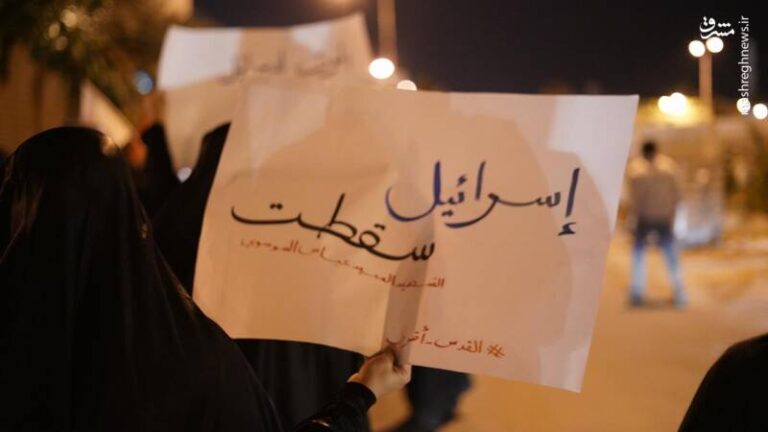 إسرائيل
سقطت
الشهيد السيد عباس الموسوي
#القدس_أقرب
مشرق
mashreghnews.ir